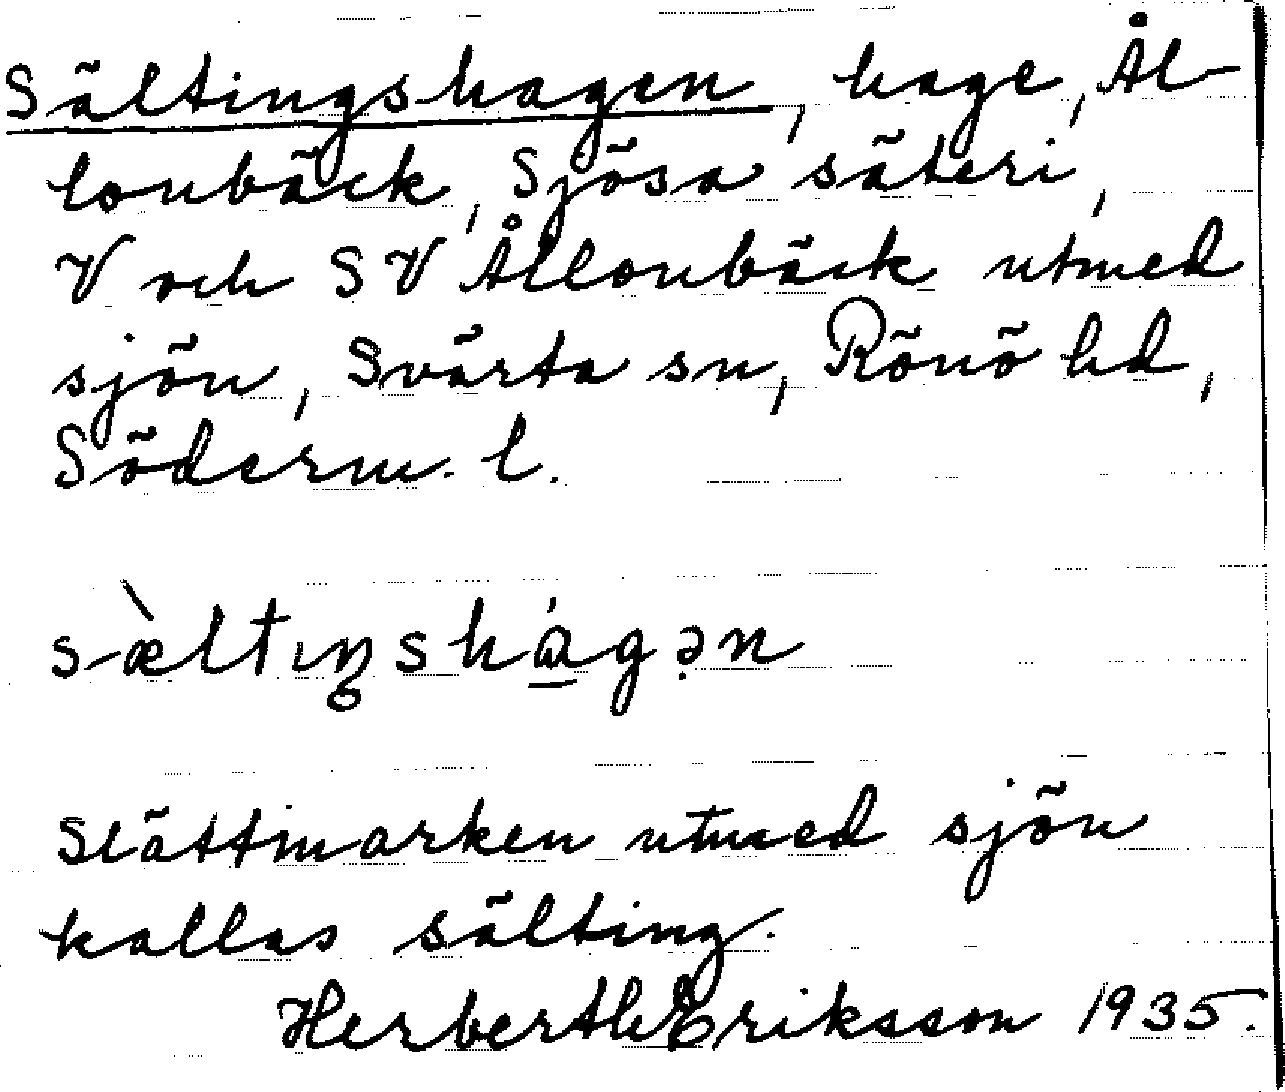 Sältingshagen, hage, Ål-
lonbäck, Sjösa säteri,
V och SV Ållonbäck utmed
sjön, Svärta sn, Rönö hd,
Söderm. l.
sæ̀ltıŋshá̱gə̣n
Slättmarken utmed sjön
kallas sälting.
Herberth Eriksson 1935.